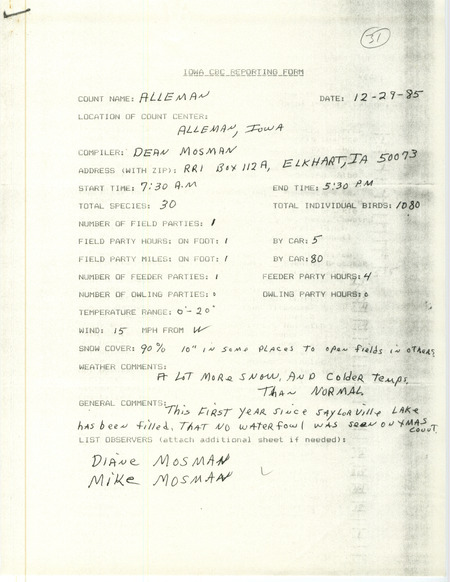 31
IOWA CBC REPORTING FORM
COUNT NAME: ALLEMAN DATE: 12-29-85
LOCATION OF COUNT CENTER:
ALLEMAN, IOWA
COMPILER: DEAN MOSMAN
ADDRESS (WITH ZIP): RR1 BOX 112A, ELKHART, IA 50073
START TIME: 7:30 A.M END TIME: 5:30 PM
TOTAL SPECIES: 30 TOTAL INDIVIDUAL BIRDS: 1080
NUMBER OF FIELD PARTIES: 1
FIELD PARTY HOURS: ON FOOT: 1 BY CAR: 5
FIELD PARTY MILES: ON FOOT: 1 BY CAR: 80
NUMBER OF FEEDER PARTIES: 1 FEEDER PARTY HOURS: 4
NUMBER OF OWLING PARTIES: 0 OWLING PARTY HOURS: 0
TEMPERATURE RANGE: 0°-20°
WIND: 15 MPH FROM W
SNOW COVER: 90% 10" IN SOME PLACES TO OPEN FIELDS IN OTHERS
WEATHER COMMENTS:
A LOT MORE SNOW, AND COLDER TEMPS.
THAN NORMAL
GENERAL COMMENTS: This FIRST YEAR SINCE SAYLORVILLE LAKE
has been filled, THAT NO WATERFOWL WAS SEEN ON XMAS COUNT.
LIST OBSERVERS (attach additional sheet if needed):
DIANE MOSMAN
MIKE MOSMAN